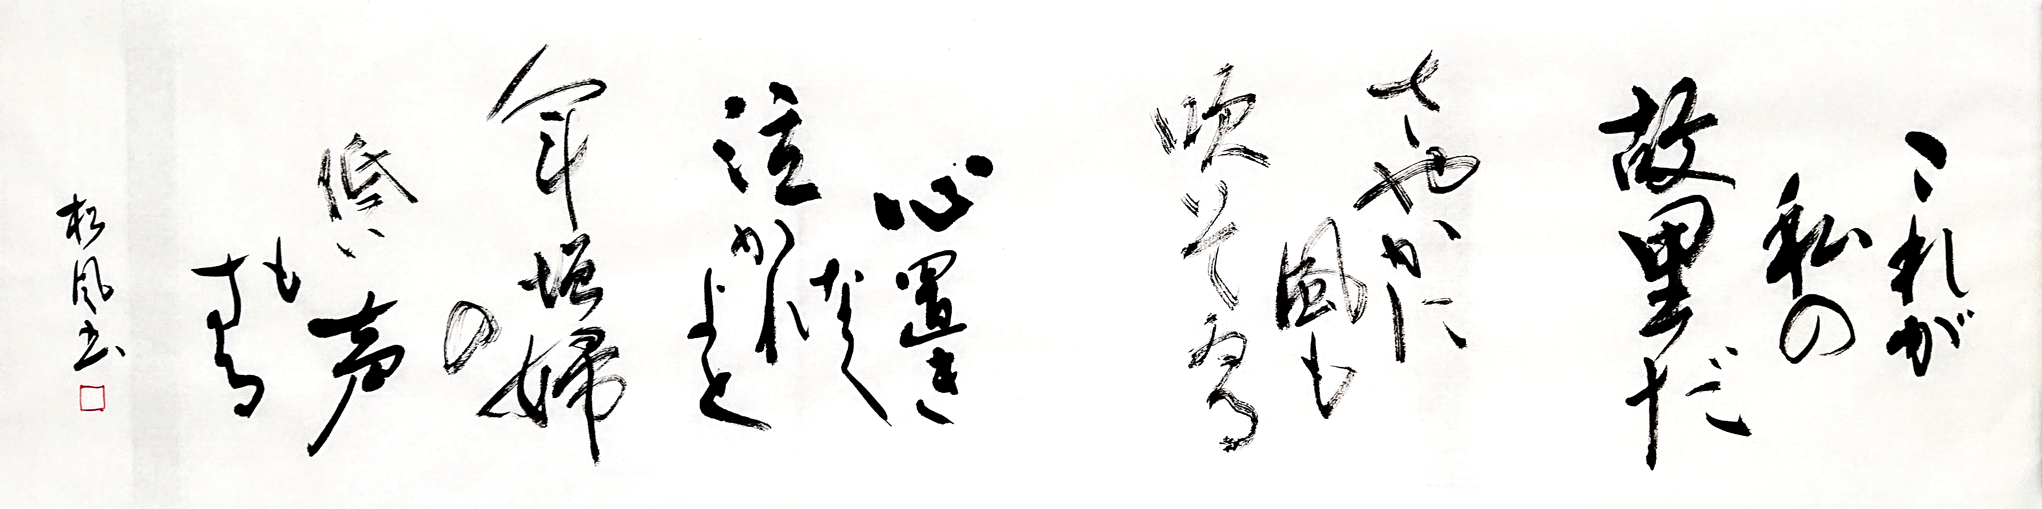 これが
私の
故里だ
さやかに
風も
吹いてゐる
心置き
なく
泣かれ
よと
年増婦
の
低い声
も
する
松風書